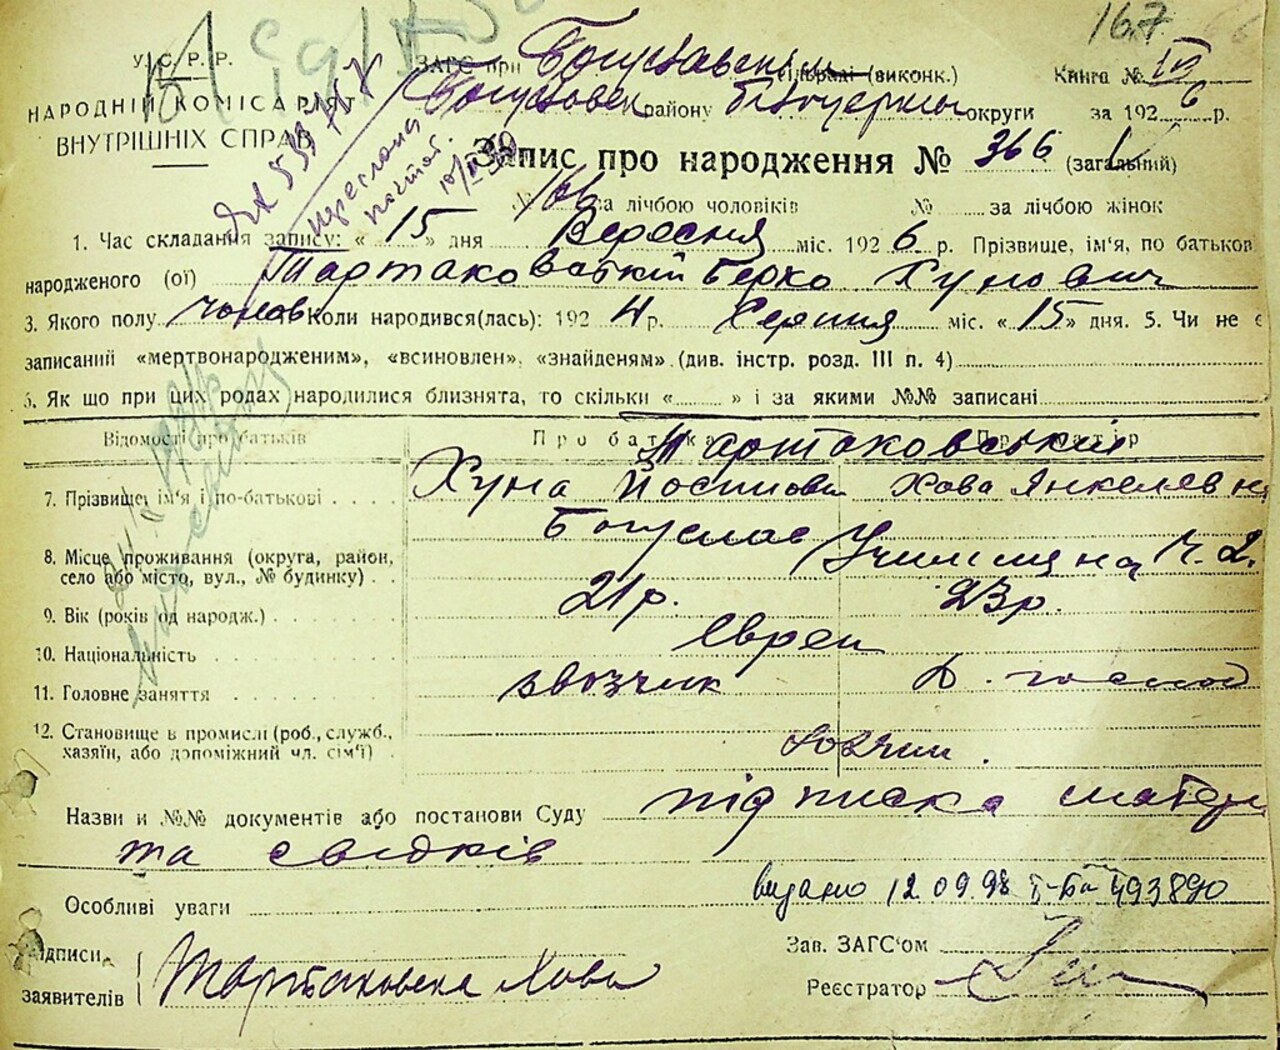 167
У.С.Р.Р. ЗАГС при Богуславськім сільраді (виконк.) Книга № III
НАРОДНІЙ КОМІСАРІЯТ Богуславськ району Білоцерківськ округи за 1926 р.
ВНУТРІШНІХ СПРАВ
переслана почтой.
Запис про народження № 366 (загальний)
№ 166 за лічбою чоловіків № за лічбою жінок
1. Час складання запису: « 15 » дня Вересня міс. 1926 р. Прізвище, ім'я, по батьков
народженого (ої) Тартаковський Берко Хунович
3. Якого полу чоловік коли народився(лась): 1924 р. Серпня міс. «15» дня. 5. Чи не є
записаний «мертвонародженим», «всиновлен», «знайденям» (див. інстр. розд. III п. 4)
6. Як що при цих родах народилися близнята, то скільки « » і за якими №№ записані
Відомості про батьків Про батька Про матір
Тартаковський
7. Прізвище, ім'я і по-батькові Хуна Йосипови Хова Янкелевна
8. Місце проживання (округа, район, Богуслав
село або місто, вул., № будинку) Училищна ч. 2.
9. Вік (років од народж.) 21р. 23р.
10. Національність Євреи
11. Головне заняття звозчик Д. господ
12. Становище в промислі (роб., служб.,
хазяїн, або допоміжний чл. сім'ї)
Назви и №№ документів або постанови Суду підписка матери
та свідків
видано 12.09.98 493890
Особливі уваги
Підписи Зав. ЗАГС'ом
заявителів Тартаковска Хова Реєстратор